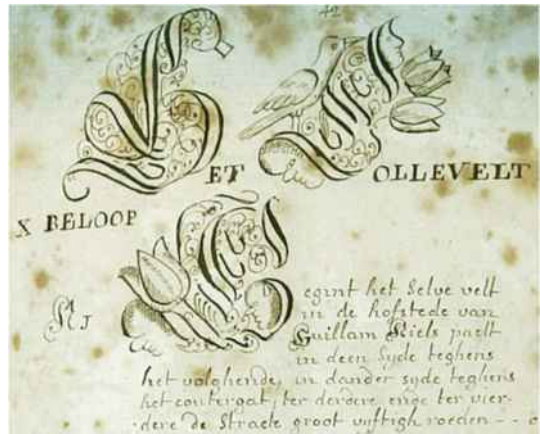 42
HET OLLEVELT
X BELOOP
N 1
Begint het Selve velt
in de hofstede van
Guillam paelt
in deen Syde teghens
het volghende, in dander syde teghens
het contergat, ter derdere ende ter vier-
dere de Straete groot vijftigh roeden - -